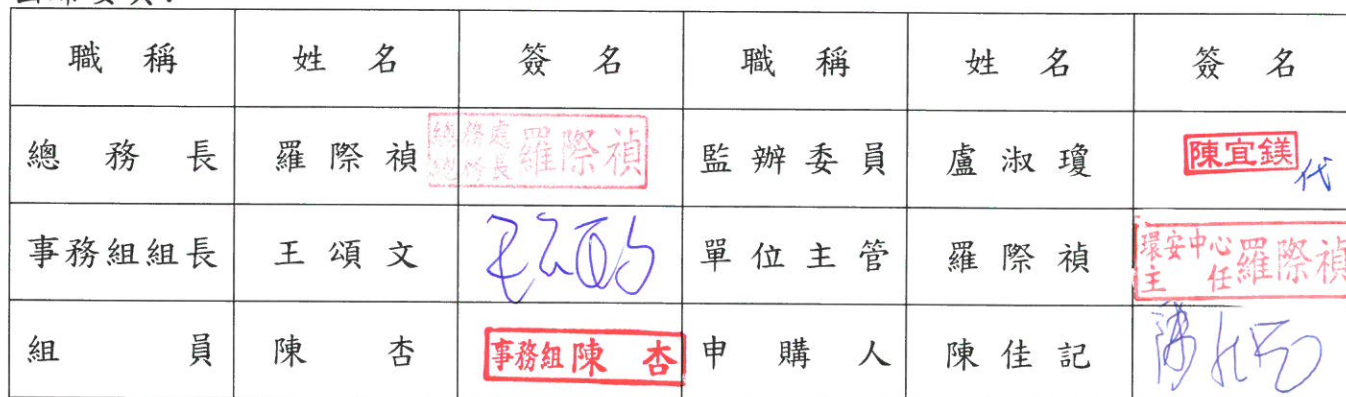 職稱 姓名 簽名 職稱 姓名 簽名
總務長 羅際禎 總務處總務長羅際禎 監辦委員 盧淑瓊 陳宜鎂代
事務組組長 王頌文 單位主管 羅際禎 環安中心主任羅際禎
組員 陳杏 事務組陳杏 申購人 陳佳記